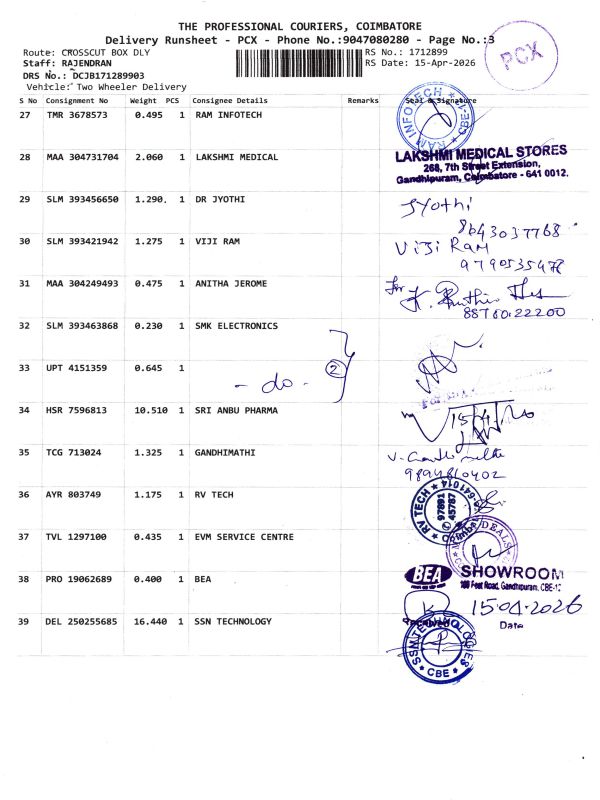 THE PROFESSIONAL COURIERS, COIMBATORE
Delivery Runsheet - PCX - Phone No.:9047080280 - Page No.:3
PCX
Route: CROSSCUT BOX DLY
RS No.: 1712899
Staff: RAJENDRAN
RS Date: 15-Apr-2026
DRS No.: DCJB171289903
Vehicle: Two Wheeler Delivery
S No Consignment No Weight PCS Consignee Details Remarks Seal & Signature
27 TMR 3678573 0.495 1 RAM INFOTECH
RAM INFOTECH CBE-1
28 MAA 304731704 2.060 1 LAKSHMI MEDICAL
LAKSHMI MEDICAL STORES
268, 7th Street Extension,
Gandhipuram, Coimbatore - 641 0012.
29 SLM 393456650 1.290. 1 DR JYOTHI
Jyothi
8643037768
30 SLM 393421942 1.275 1 VIJI RAM
VIJI RAM
9790535478
31 MAA 304249493 0.475 1 ANITHA JEROME
For K.
8870022200
32 SLM 393463868 0.230 1 SMK ELECTRONICS
33 UPT 4151359 0.645 1
- do - 2
34 HSR 7596813 10.510 1 SRI ANBU PHARMA
15/4/26
35 TCG 713024 1.325 1 GANDHIMATHI
9894860402
36 AYR 803749 1.175 1 RV TECH
RV TECH 97891 45787 Coimbatore-641014
37 TVL 1297100 0.435 1 EVM SERVICE CENTRE
DEALS
38 PRO 19062689 0.400 1 BEA
BEA SHOWROOM
100 Feet Road, Gandhipuram, CBE-12
15-04-2026
Received Date
39 DEL 250255685 16.440 1 SSN TECHNOLOGY
SSN TECHNOLOGIES CBE